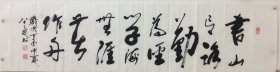 書山
有路
勤
為徑
学海
無涯
苦
作舟